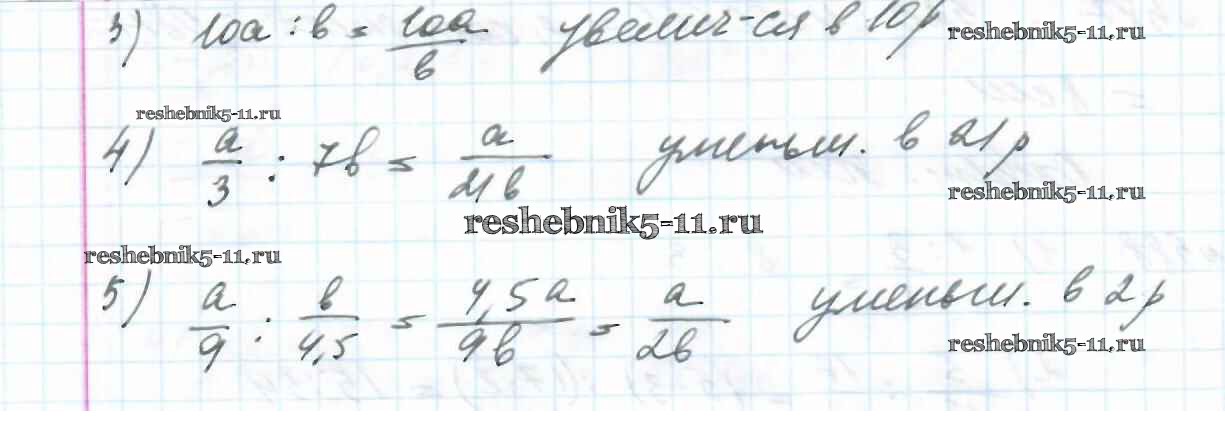 3) 10a : b = 10a/b увелич-ся в 10 р
reshebnik5-11.ru
reshebnik5-11.ru
4) a/3 : 7b = a/21b уменьш. в 21 р
reshebnik5-11.ru
reshebnik5-11.ru
reshebnik5-11.ru
5) a/9 : b/4,5 = 4,5a/9b = a/2b уменьш. в 2 р
reshebnik5-11.ru